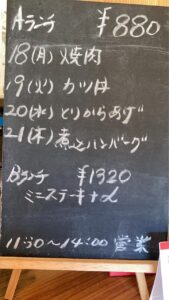 Aランチ ¥880
18(月)焼肉
19(火)カツ丼
20(水)とりからあげ
21(木)煮込ハンバーグ
Bランチ ¥1320
ミニステーキ+α
11:30〜14:00 営業